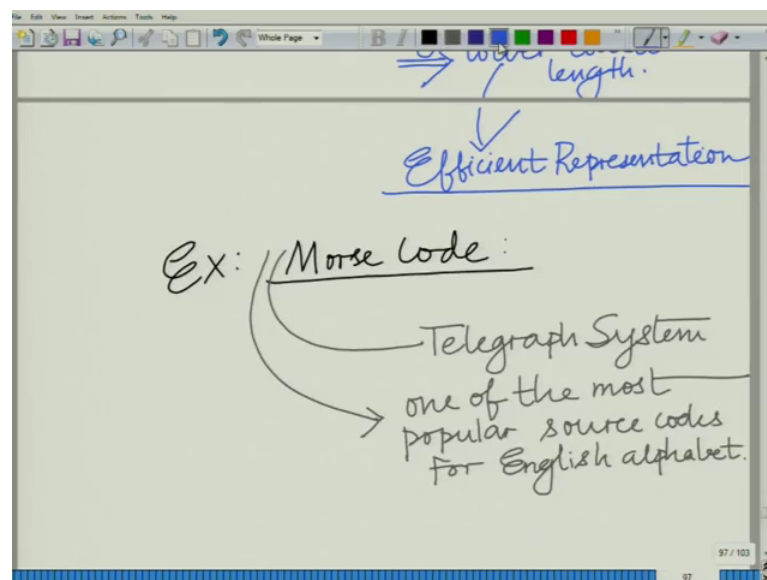 File Edit View Insert Actions Tools Help
Whole Page
B I
length.
Efficient Representation
Ex: Morse Code:
Telegraph System
one of the most
popular source codes
for English alphabet.
97 / 103
97